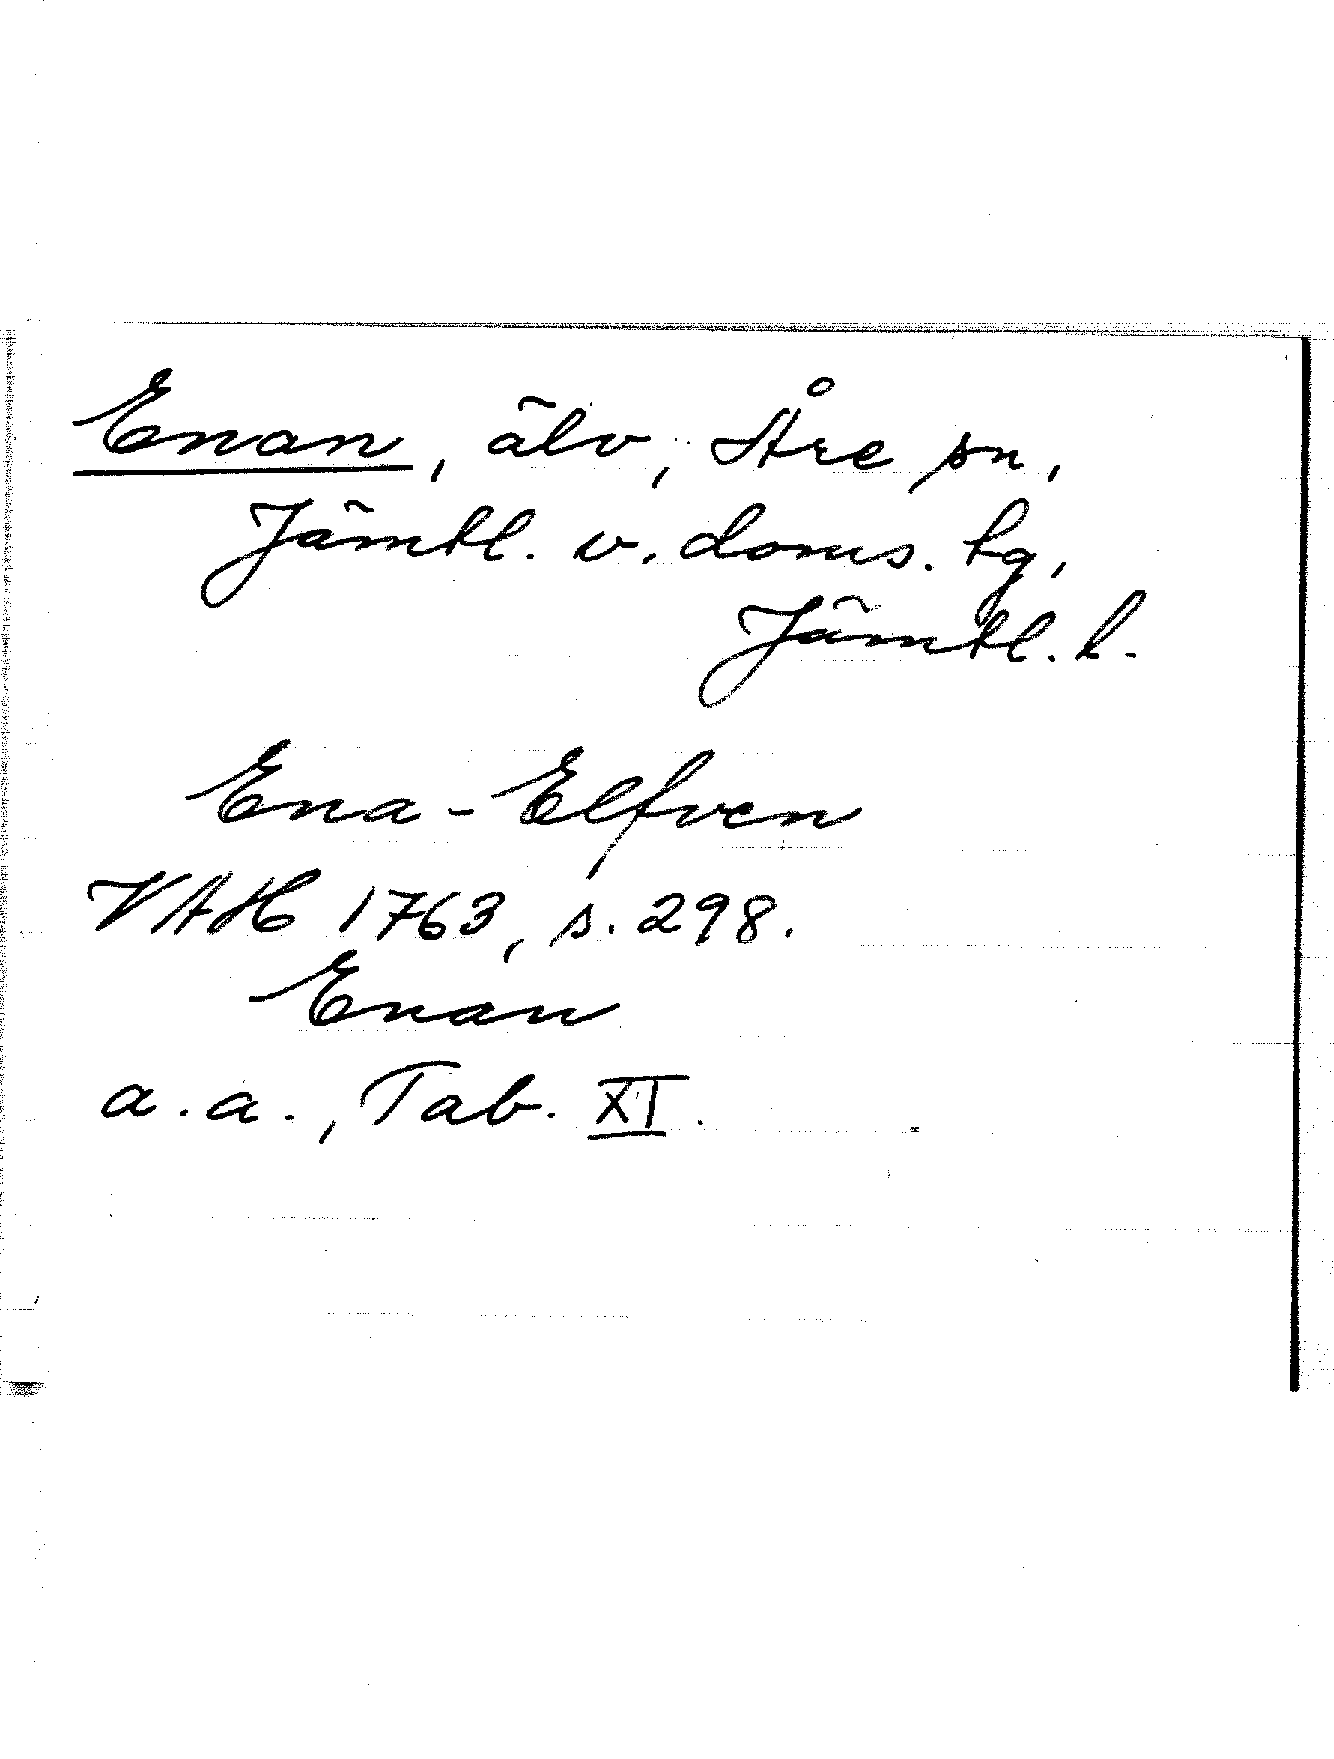 Enan, älv, Åre sn,
Jämtl. v. doms. tg,
Jämtl. l.
Ena-Elfven
VAH 1763, s. 298.
Enan
a.a., Tab. XI.